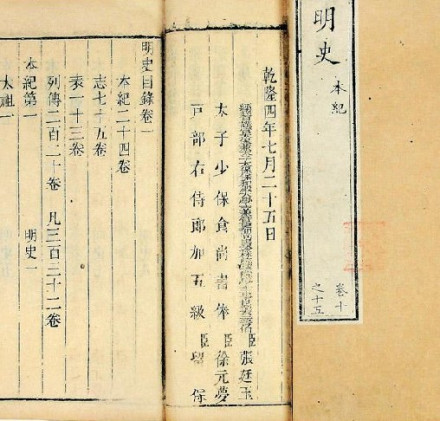 明史 本紀
卷十
之十五
乾隆四年七月二十五日
臣張廷玉
太子少保食尚書俸臣徐元夢
戶部右侍郎加五級臣留保
明史目錄卷一
本紀二十四卷
志七十五卷
表一十三卷
列傳二百二十卷 凡三百三十二卷
本紀第一 明史一
太祖一